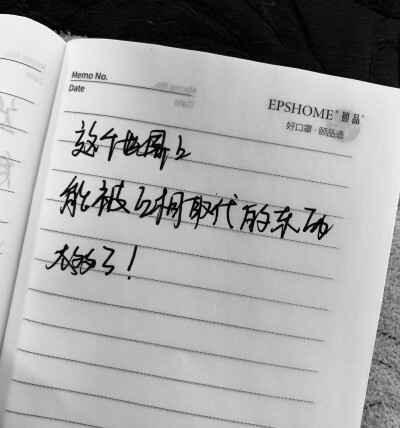 Memo No.
Date
EPSHOME® 颐品®
好口罩·颐品造
这个世界上
能被互相取代的东西
太多了！